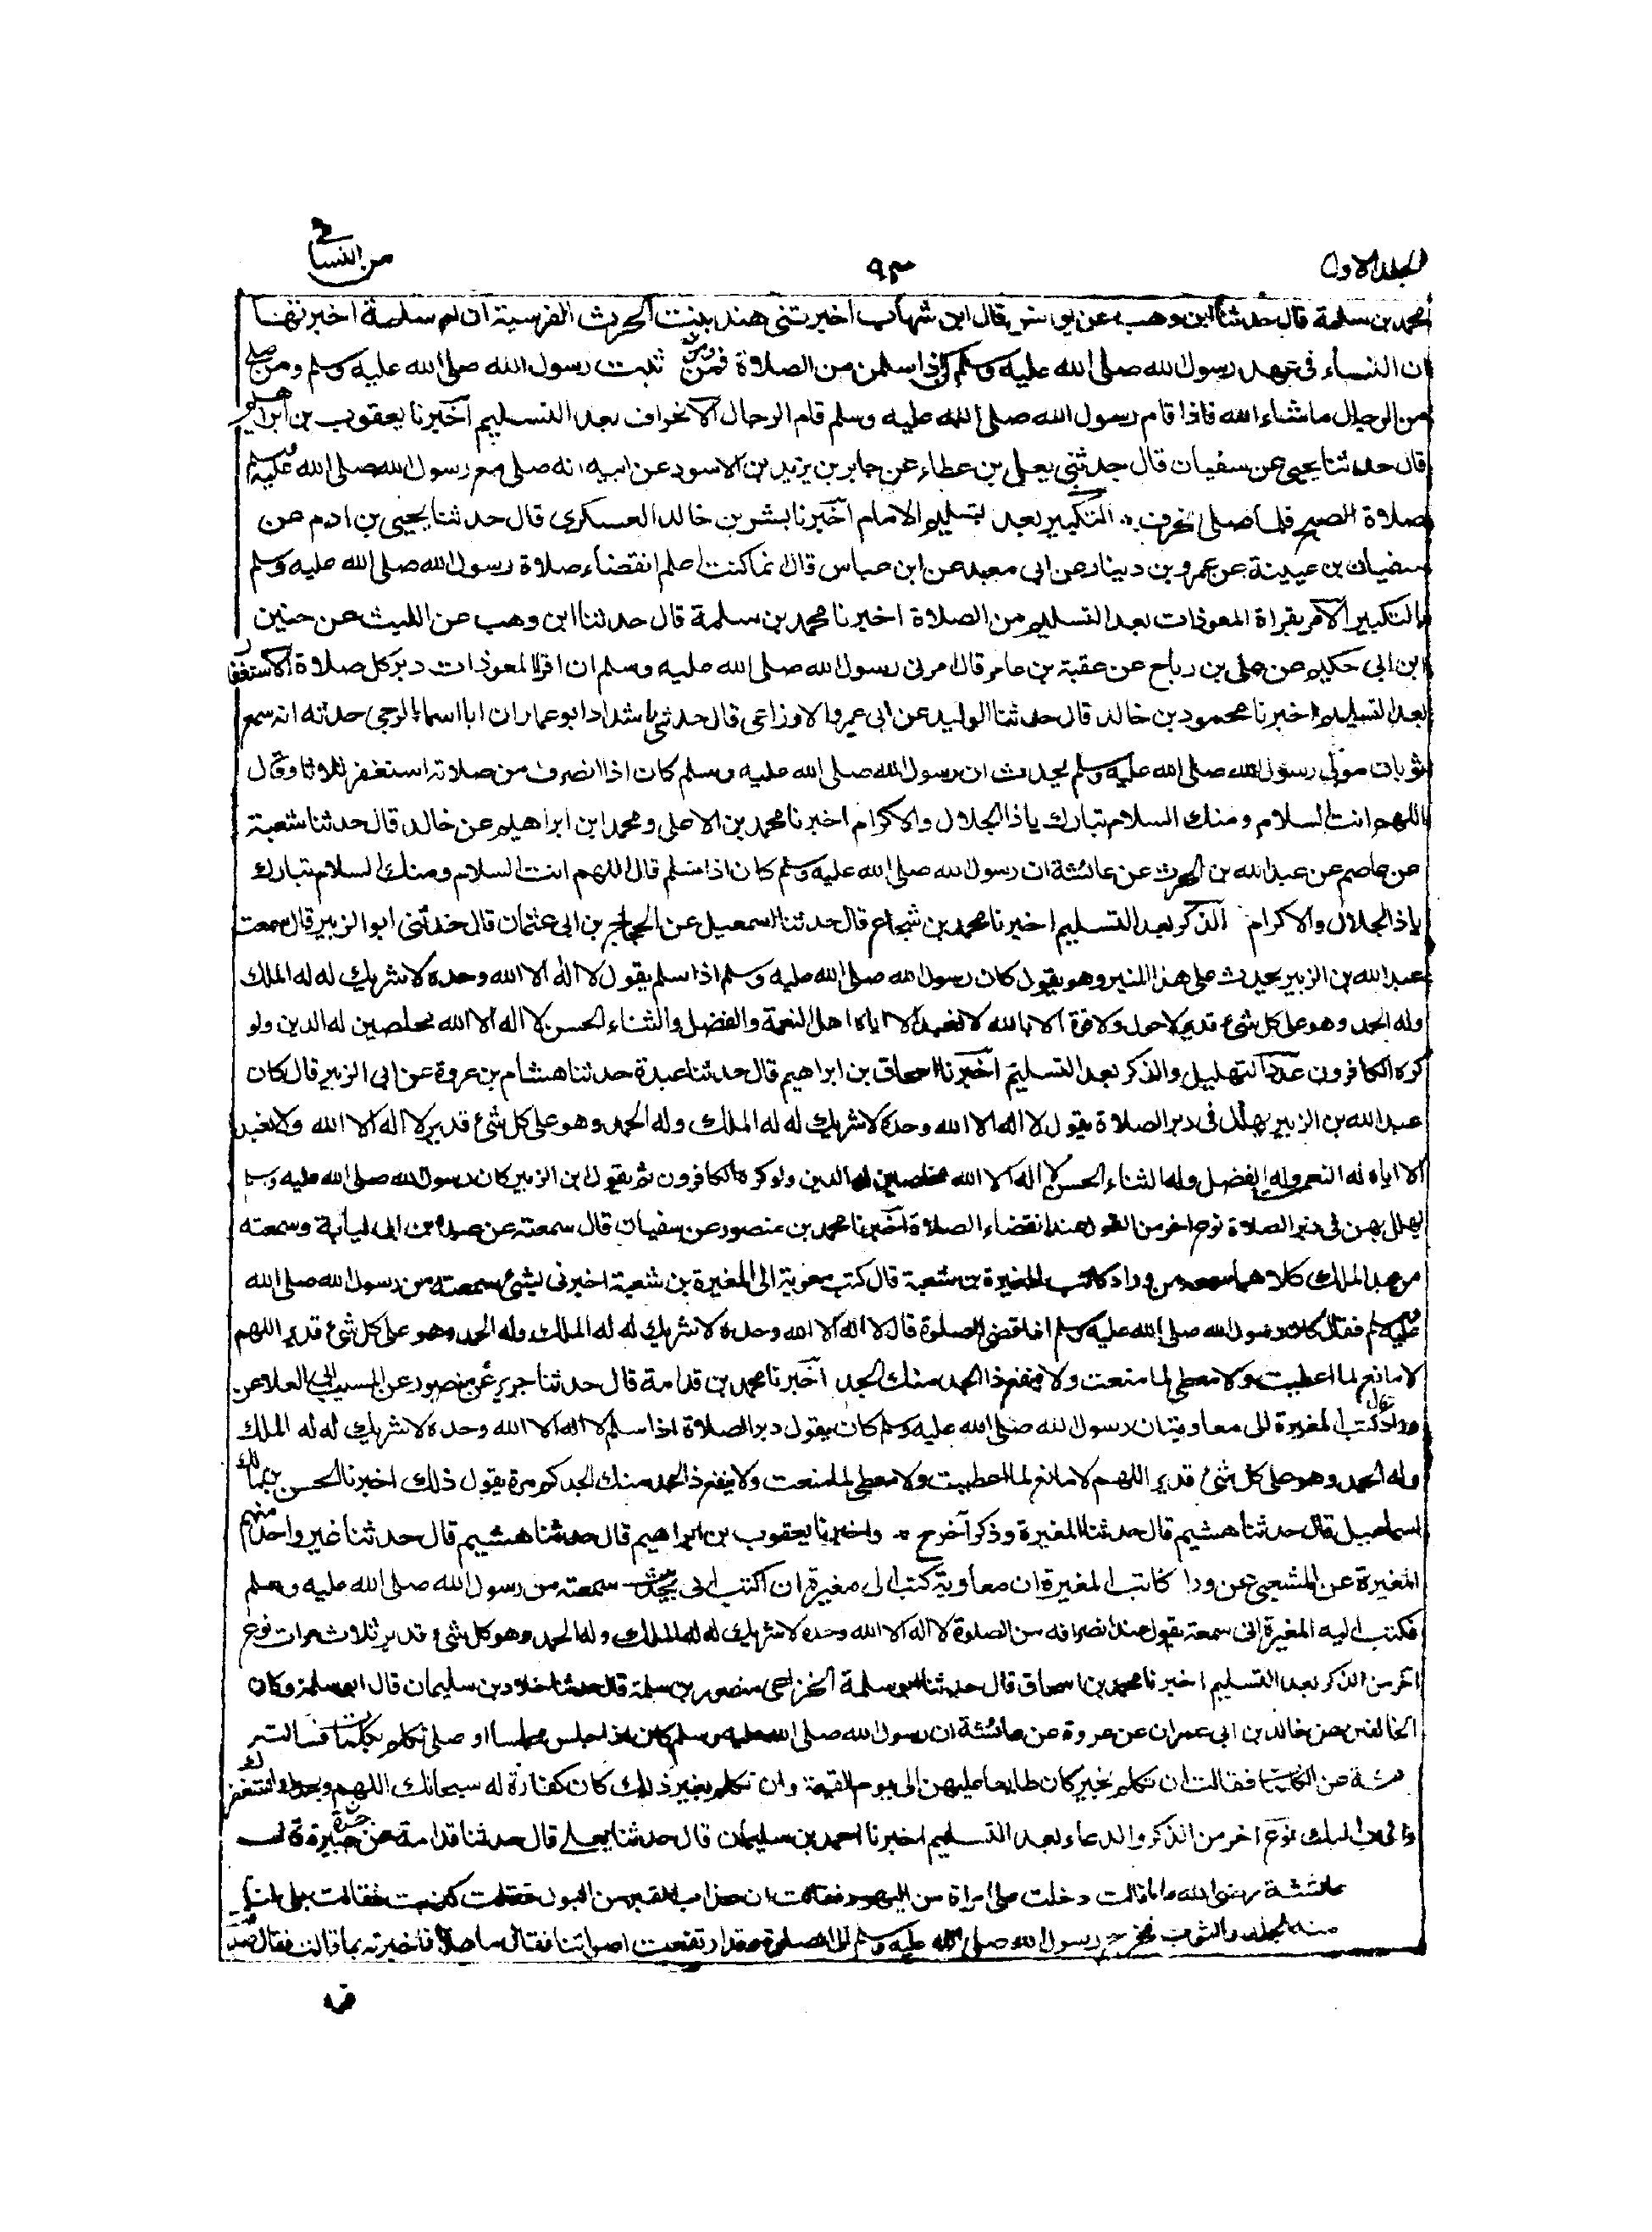 الجلد الاول
٩٣
من النسائي
محمد بن سلمة قال حدثنا ابن وهب عن يونس قال ابن شهاب اخبرتني هند بنت الحرث الفرسية ان ام سلمة اخبرتها
ان النساء في عهد رسول الله صلى الله عليه وسلم كن اذا سلمن من الصلاة قمن وثبت رسول الله صلى الله عليه وسلم ومن صلى
من الرجال ماشاء الله فاذا قام رسول الله صلى الله عليه وسلم قام الرجال الانحراف بعد التسليم اخبرنا يعقوب بن ابراهيم
قال حدثنا يحيى عن سفيان قال حدثني يعلى بن عطاء عن جابر بن يزيد بن الاسود عن ابيه انه صلى مع رسول الله صلى الله عليه وسلم
صلاة الصبح فلما صلى انحرف التكبير بعد تسليم الامام اخبرنا بشر بن خالد العسكرى قال حدثنا يحيى بن ادم عن
سفيان بن عيينة عن عمرو بن دينار عن ابى معبد عن ابن عباس قال انما كنت اعلم انقضاء صلاة رسول الله صلى الله عليه وسلم
بالتكبير الامر بقراة المعوذات بعد التسليم من الصلاة اخبرنا محمد بن سلمة قال حدثنا ابن وهب عن الليث عن حنين
ابن ابى حكيم عن على بن رباح عن عقبة بن عامر قال امرنى رسول الله صلى الله عليه وسلم ان اقرا المعوذات دبر كل صلاة الاستغفار
بعد التسليم اخبرنا محمود بن خالد قال حدثنا الوليد عن ابى عمرو الاوزاعى قال حدثنى شداد ابو عمار ان ابا اسماء الرحبى حدثه انه سمع
ثوبان مولى رسول الله صلى الله عليه وسلم يحدث ان رسول الله صلى الله عليه وسلم كان اذا انصرف من صلاته استغفر ثلاثا وقال
اللهم انت السلام ومنك السلام تبارك ياذا الجلال والاكرام اخبرنا محمد بن الاعلى ومحمد ابن ابراهيم عن خالد قال حدثنا شعبة
عن عاصم عن عبد الله بن الحرث عن عائشة ان رسول الله صلى الله عليه وسلم كان اذا سلم قال اللهم انت السلام ومنك السلام تبارك
ياذا الجلال والاكرام الذكر بعد التسليم اخبرنا محمد بن شجاع قال حدثنا اسمعيل عن الحجاج بن ابى عثمان قال حدثنى ابو الزبير قال سمعت
عبد الله بن الزبير يحدث على هذا المنبر وهو يقول كان رسول الله صلى الله عليه وسلم اذا سلم يقول لا اله الا الله وحده لا شريك له له الملك
وله الحمد وهو على كل شئ قدير لاحول ولاقوة الا بالله لا نعبد الا اياه اهل النعمة والفضل والثناء الحسن لا اله الا الله مخلصين له الدين ولو
كره الكافرون عدد التهليل والذكر بعد التسليم اخبرنا اسحاق بن ابراهيم قال حدثنا عبدة حدثنا هشام بن عروة عن ابى الزبير قال كان
عبد الله بن الزبير يهلل فى دبر الصلاة يقول لا اله الا الله وحده لا شريك له له الملك وله الحمد وهو على كل شئ قدير لا اله الا الله ولا نعبد
الا اياه له النعم وله الفضل وله الثناء الحسن لا اله الا الله مخلصين له الدين ولو كره الكافرون ثم يقول ابن الزبير كان رسول الله صلى الله عليه وسلم
يهلل بهن فى دبر الصلاة نوع اخر من القول عند انقضاء الصلاة اخبرنا محمد بن منصور عن سفيان قال سمعته عن عبدة بن ابى لبابة وسمعته
من عبد الملك كلاهما سمعه من وراد كاتب المغيرة بن شعبة قال كتب معوية الى المغيرة بن شعبة اخبرنى بشئ سمعته من رسول الله صلى الله
عليه وسلم فقال كان رسول الله صلى الله عليه وسلم اذا قضى الصلوة قال لا اله الا الله وحده لا شريك له له الملك وله الحمد وهو على كل شئ قدير اللهم
لا مانع لما اعطيت ولا معطى لما منعت ولا ينفع ذا الجد منك الجد اخبرنا محمد بن قدامة قال حدثنا جرير عن منصور عن المسيب ابى العلا عن
وراد قال كتب المغيرة الى معاوية ان رسول الله صلى الله عليه وسلم كان يقول دبر الصلاة اذا سلم لا اله الا الله وحده لا شريك له له الملك
وله الحمد وهو على كل شئ قدير اللهم لا مانع لما اعطيت ولا معطى لما منعت ولا ينفع ذا الجد منك الجد كم مرة يقول ذلك اخبرنا الحسن بن
اسماعيل قال حدثنا هشيم قال حدثنا المغيرة وذكر آخر ح واخبرنا يعقوب بن ابراهيم قال حدثنا هشيم قال حدثنا غير واحد منهم
المغيرة عن الشعبى عن وراد كاتب المغيرة ان معاوية كتب الى مغيرة ان اكتب الى بحديث سمعته من رسول الله صلى الله عليه وسلم
فكتب اليه المغيرة انى سمعته يقول عند انصرافه من الصلوة لا اله الا الله وحده لا شريك له له الملك وله الحمد وهو كل شئ قدير ثلاث مرات نوع
اخر من الذكر بعد التسليم اخبرنا محمد بن اسحاق قال حدثنا ابو سلمة الخزاعى منصور بن سلمة قال حدثنا خلاد بن سليمان قال ابو سلمة وكان
الخائفين عن خالد بن ابى عمران عن عروة عن عائشة ان رسول الله صلى الله عليه وسلم كان اذا جلس مجلسا او صلى تكلم بكلمات فسالته
عائشة عن الكلمات فقالت ان تكلم بخير كان طابعا عليهن الى يوم القيمة وان تكلم بغير ذلك كان كفارة له سبحانك اللهم وبحمدك استغفرك
واتوب اليك نوع اخر من الذكر والدعاء بعد التسليم اخبرنا احمد بن سليمان قال حدثنا يعلى قال حدثنا قدامة عن جسرة
عائشة رضى الله عنها قالت دخلت على امراة من اليهود فقالت ان عذاب القبر من البول فقلت كذبت فقالت بلى انا
منه الجلد والثوب فخرج رسول الله صلى الله عليه وسلم الى الصلوة وقد ارتفعت اصواتنا فقال ما هذا فاخبرته بما قالت فقال صدقت